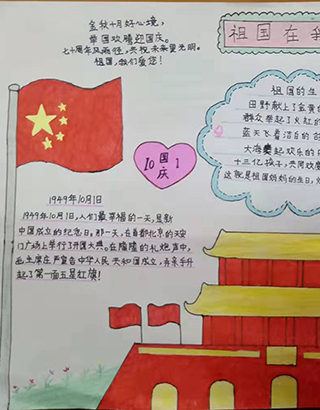 金秋十月好心境,
举国欢腾迎国庆。
七十周年风雨径,共祝未来更光明。
祖国,我们爱您!
祖国在
祖国的生
田野献上了金黄的
群众举起了火红的
蓝天飞着洁白的
大海奏起欢乐的
十三亿孩子,共同欢
这就是祖国妈妈的生日,
国
10 1
庆
1949年10月1日
1949年10月1日,人们最幸福的一天,是新
中国成立的纪念日。那一天,在首都北京的天安
门广场上举行了开国大典。在隆隆的礼炮声中,
毛主席庄严宣告中华人民共和国成立,并亲手升
起了第一面五星红旗!